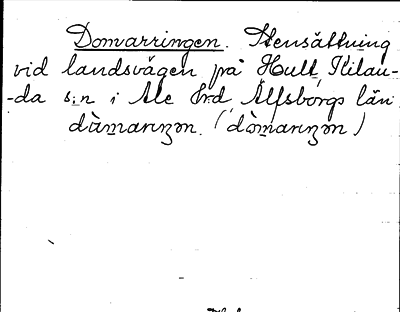 Domarringen. Stensättning
vid landsvägen på Hult, Kilan-
-da s:n i Ale Hrd, Älfsborgs län
dòmarɩŋən. (dòmarɩŋən)